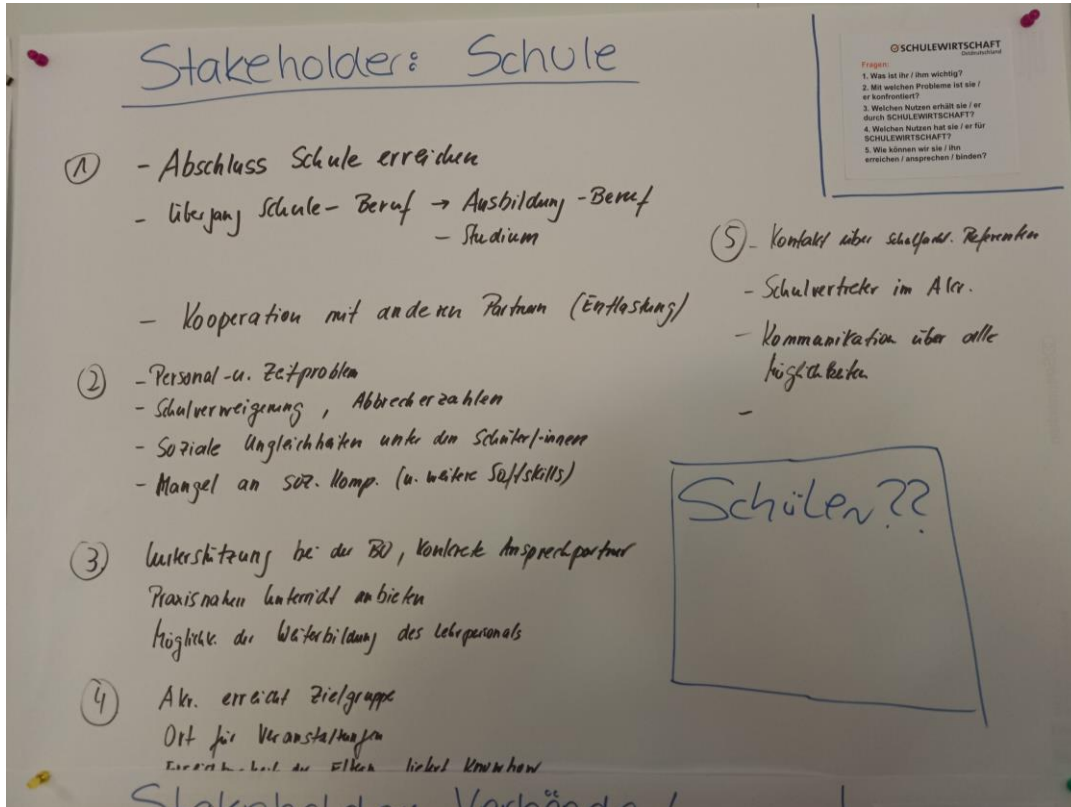 Stakeholder: Schule
SCHULEWIRTSCHAFT
Ostdeutschland
Fragen:
1. Was ist ihr / ihm wichtig?
2. Mit welchen Probleme ist sie /
er konfrontiert?
3. Welchen Nutzen erhält sie / er
durch SCHULEWIRTSCHAFT?
4. Welchen Nutzen hat sie / er für
SCHULEWIRTSCHAFT?
5. Wie können wir sie / ihn
erreichen / ansprechen / binden?
① - Abschluss Schule erreichen
- Übergang Schule - Beruf → Ausbildung - Beruf
- Studium
- Kooperation mit anderen Partnern (Entlastung)
② - Personal- u. Zeitproblem
- Schulverweigerung, Abbrecherzahlen
- Soziale Ungleichheiten unter den Schüler/-innen
- Mangel an soz. Komp. (u. weitere Softskills)
③ Unterstützung bei der BO, konkrete Ansprechpartner
Praxisnahen Unterricht anbieten
Möglichk. der Weiterbildung des Lehrpersonals
④ Akr. erreicht Zielgruppe
Ort für Veranstaltungen
der Eltern liefert Knowhow
⑤ - Kontakt über Referenten
- Schulvertreter im Akr.
- Kommunikation über alle
Möglichkeiten
-
Schüler??
Stakeholder: Verbände /